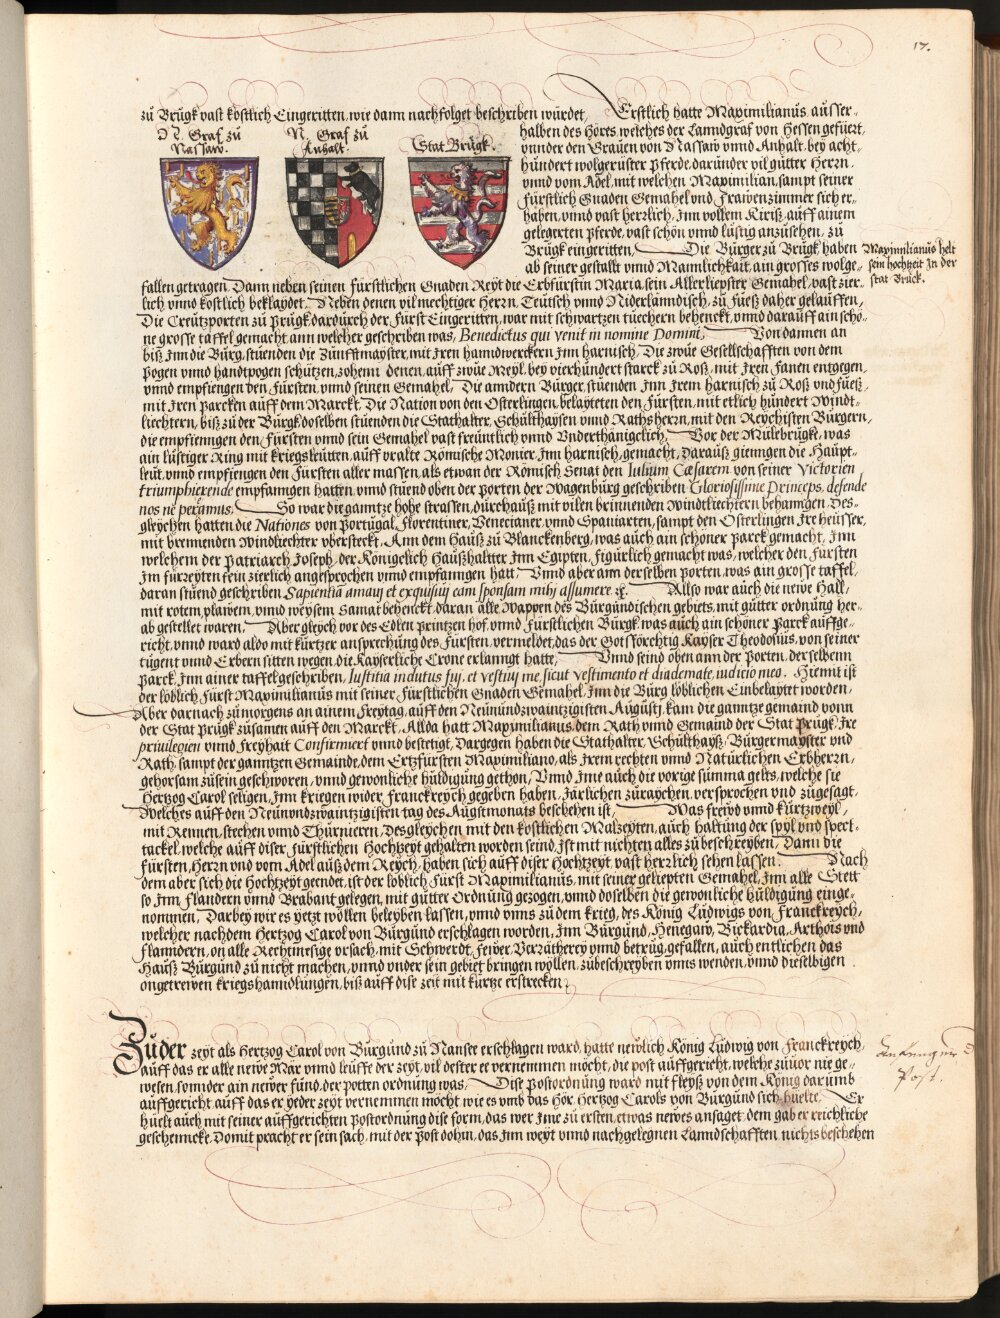 17.
zů Brügk vast köstlich Eingeritten, wie dann nachfolget beschriben würdet, Erstlich hatte Maximilianus, ausser-
N. Graf zů Nassaw.
N. Graf zů Anhalt.
Stat Brügk.
halben des Hörs welches der Lanndgraf von Hessen gefüert,
vnnder den Grauen von Nassaw vnnd Anhalt, bey acht-
hündert wolgerüster Pferde, daründer vil gütter Herrn,
vnnd vom Adel, mit welchen Maximilian, sampt seiner
fürstlich Gnaden Gemahel vnd Frawenzimmer sich er-
haben, vnnd vast herzlich, Jnn vollem Kiriß, auff ainem
gelegerten Pferde, vast schön vnnd lüstig anzüsehen, zü
Brügk eingeritten, Die Bürger zü Brügk, haben
ab seiner gestallt vnnd Mannlichkait, ain grosses wolge-
Maximilianus helt
sein hochzeit Jn der
stat Bruck.
fallen getragen, Dann neben seinen fürstlichen Gnaden Reyt die Erbfürstin Maria, sein Allerliepster Gemahel, vast zier-
lich vnnd kostlich beklaydet, Neben denen vil mechtiger Herrn, Teütsch vnnd Niderlanndisch, zü Füeß daher gelauffen,
Die Creützporten zü Prügk, dardürch der Fürst Eingeritten, war mit schwartzen tüechern behenckt, vnnd darauff ain schö-
ne grosse taffel gemacht, ann welcher geschriben was, Benedictus qui venit in nomine Domini, Von dannen an
biß Jnn die Bürg, stüenden die Zünfftmayster, mit Jren hanndwerckern Jnn harnisch, Die zwüe Gesellschafften von dem
Pogen vnnd handtpogen schützen, zohenn denen, auff zwüe Meyl, bey vierhündert starck zü Roß, mit Jren Fanen entgegen,
vnnd empfiengen den Fürsten, vnnd seinen Gemahel, Die anndern Bürger, stüenden Jnn Jrem harnisch zü Roß vnd Füeß,
mit Jren Parcken auff dem Marckt, Die Nation von den Osterlingen, belayteten den Fürsten, mit etlich hündert Windt-
liechtern, biß zü der Bürgk doselben stüenden die Stathalter, Schülthaysen vnnd Rathsherrn, mit den Reychisten Bürgern,
die empfienngen den Fürsten vnnd sein Gemahel vast freüntlich vnnd Vnderthänigclich, Vor der Mülebrügke, was
ain lüstiger Ring mit kriegsleütten, auff vralte Römische Monier Jnn harnisch, gemacht, Darauß giengen die Haupt-
leüt, vnnd empfiengen den Fürsten aller massen, als etwan der Römisch Senat den Iulium Cæsarem von seiner Victorien
triumphierende empfanngen hatten, vnnd stüend oben der Porten der Wagenbürg geschriben Gloriosissime Princeps, defende
nos ne pereamus, So war die ganntze hohe strassen, dürchauß mit vilen brinnenden Windtliechtern behanngen, Des-
gleychen hatten die Nationes von Portügal, Florentiner, Venecianer, vnnd Spaniarten, sampt den Osterlingen Jre heüsser,
mit brennenden Windliechter vbersteckt, Ann dem Hauß zü Blanckenberg, was auch ain schöner Parck gemacht, Jnn
welchem der Patriarch Joseph, der Königclich Haußhalter Jnn Egipten, figürlich gemacht was, welcher den Fürsten
Jm fürreyten fein zierlich angesprochen vnnd empfanngen hatt, Vnnd aber ann derselben Porten, was ain grosse taffel,
daran stüend geschriben, Sapientia amaui et exquisiui eam sponsam mihi assumere &c. Allso war auch die newe Hall,
mit rotem, plawem, vnnd weysem Samat behenckt, daran alle Wappen des Bürgündischen gebiets, mit gütter ordnüng her-
ab gestellet waren, Aber gleych vor des Edlen Printzen hof, vnnd Fürstlichen Bürgk, was auch ain schöner Parck auffge-
richt, vnnd ward aldo mit kürtzer ansprechüng des Fürsten, vermeldet, das der Gotsförchtig Kayser Theodosius, von seiner
tügent vnnd Erbern sitten wegen, die Kayserliche Crone erlanngt hatte, Vnnd seind oben ann der Porten, der selbenn
Parck Jnn ainer taffel geschriben, Iustitia indutus sui, et vestiui me, sicut vestimento et diademate, iudicio meo. Hiemit ist
der löblich Fürst Maximilianus mit seiner Fürstlichen Gnaden Gemahel, Jnn die Bürg löblichen Einbelaytet worden,
Aber darnach zü morgens an ainem Freytag, auff den Neünündzwaintzigisten Augüsti, kam die ganntze gemaind vonn
der Stat Prügk zusamen auff den Marckt, Allda hatt Maximilianus, dem Rath vnnd Gemaind der Stat Prügk, Jre
priuilegien vnnd Freyhait Confirmiert vnnd bestetigt, Dargegen haben die Stathalter, Schülthayß, Bürgermayster vnd
Rath, sampt der ganntzen Gemainde, dem Ertzfürsten Maximiliano, als Jrem rechten vnnd Natürlichen Erbherrn,
gehorsam züsein geschworen, vnnd gewonliche hüldigüng gethon, Vnnd Jme auch die vorige sümma gelts, welche sie
Hertzog Carol seligen, Jnn kriegen wider Franckreych gegeben haben, Järlichen züraychen, versprochen vnd zügesagt,
Welches auff den Neünündzwaintzigisten tag des Augstmonats beschehen ist, Was frewd vnnd kürtzweyl,
mit Rennen, stechen vnnd Thürnieren, Desgleychen mit den kostlichen Malzeyten, auch haltüng der spyl vnd spect-
tackel, welche auff diser Fürstlichen Hochtzeyt gehalten worden seind, Jst mit nichten alles zü beschreyben, Dann die
Fürsten, Herrn vnd vom Adel auß dem Reych, haben sich auff diser Hochtzeyt, vast herrlich sehen lassen. Nach
dem aber sich die Hochtzeyt geendet, ist der löblich Fürst Maximilianus, mit seiner geliepten Gemahel, Jnn alle Stett
so Jnn Flandern vnnd Brabant gelegen, mit gütter Ordnüng gezogen, vnnd doselben die gewonliche hüldigüng einge-
nommen, Darbey wir es yetzt wöllen beleyben lassen, vnnd vnns zü dem krieg, des König Lüdwigs von Franckreych,
welcher nachdem Hertzog Carol von Bürgünd erschlagen worden, Jnn Bürgünd, Henegaw, Bickardia, Arthois vnd
Flanndern, on alle Rechtmesige vrsach, mit Schwerdt, Fewer, Verrätherey vnnd betrüg, gefallen, auch entlichen das
Hauß Bürgünd zü nicht machen, vnnd vnder sein gebiet bringen wöllen, zübeschreyben vnns wenden, vnnd dieselbigen
ongetrewen kriegshanndlüngen, biß auff dise zeit mit kürtze erstrecken,
Zü der zeyt als Hertzog Carol von Bürgünd zü Nansee erschlagen ward, hatte newlich König Lüdwig von Franckreych,
auff das er alle newe Mär vnnd leüffe der zeyt, vil dester ee vernemmen möcht, die post auffgericht, welche züuor nie ge-
wesen, sonnder ain newer fünd, der Potten ordnüng was, Dise Postordnüng ward mit fleyß von dem König darümb
auffgericht, auff das er yeder zeyt vernemmen möcht wie es vmb das Hör, Hertzog Carols von Bürgünd sich hüelte, Er
hüelt auch mit seiner auffgerichten Postordnüng dise form, das wer Jme zü ersten, etwas newes ansaget, dem gab er reichliche
geschenncke, Domit pracht er sein sach, mit der Post dohin, das Jnn weyt vnnd nachgelegnen Lanndschafften nichts beschehen
Post.